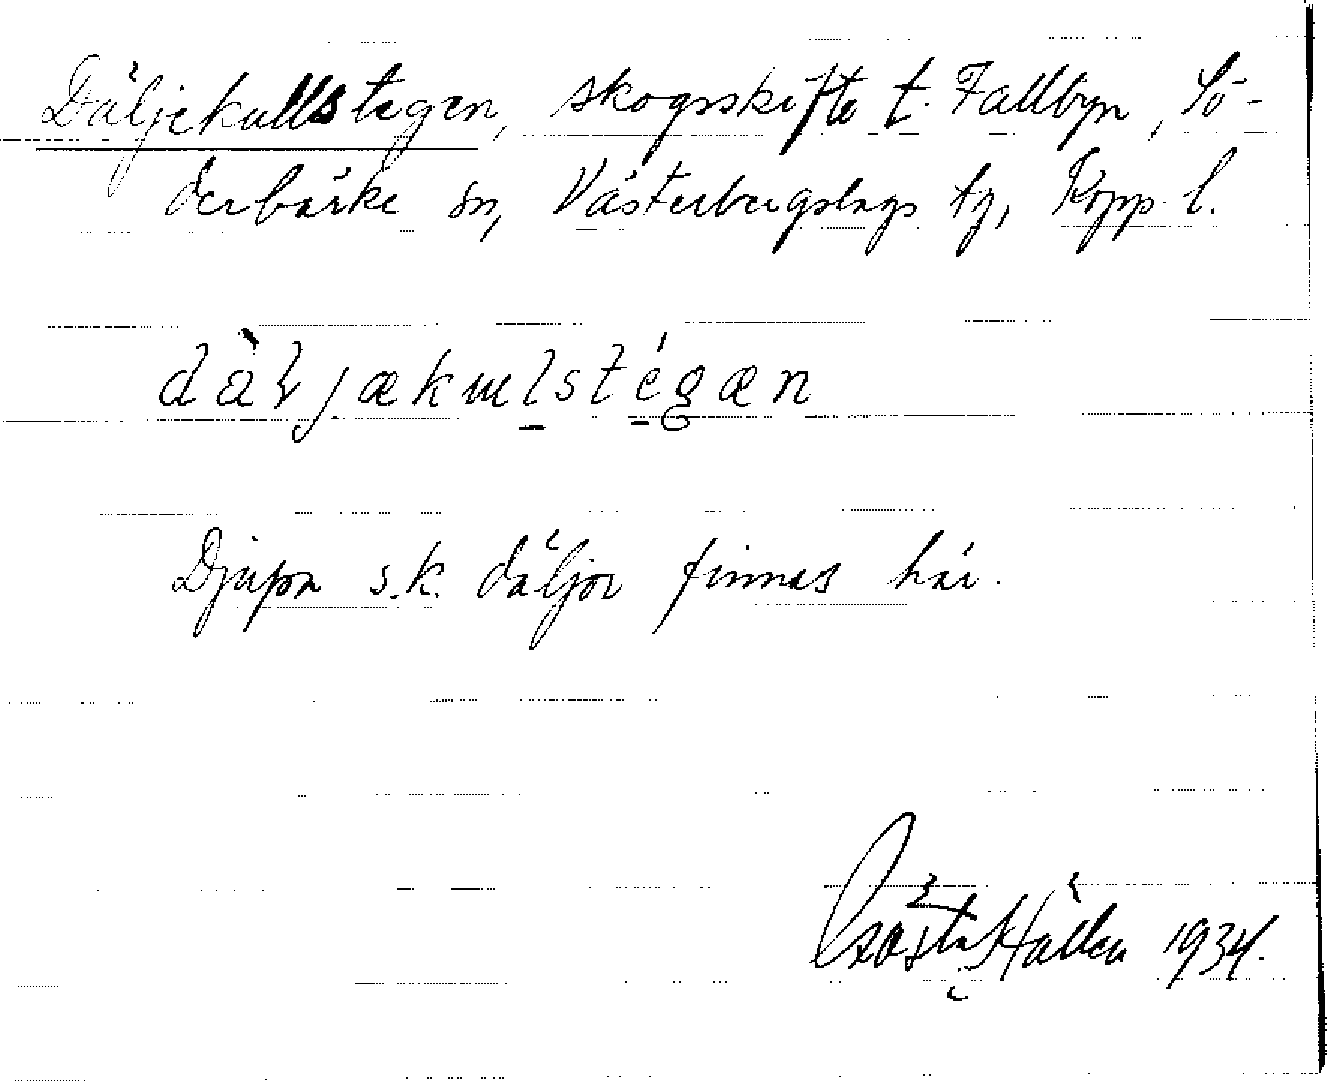 Däljekullstegen, skogsskifte t. Fallbyn, Sö-
derbärke sn, Västerbergslags tg, Kopp. l.
Djupa s.k. däljor finnas här.
Gösta Hallen 1934.